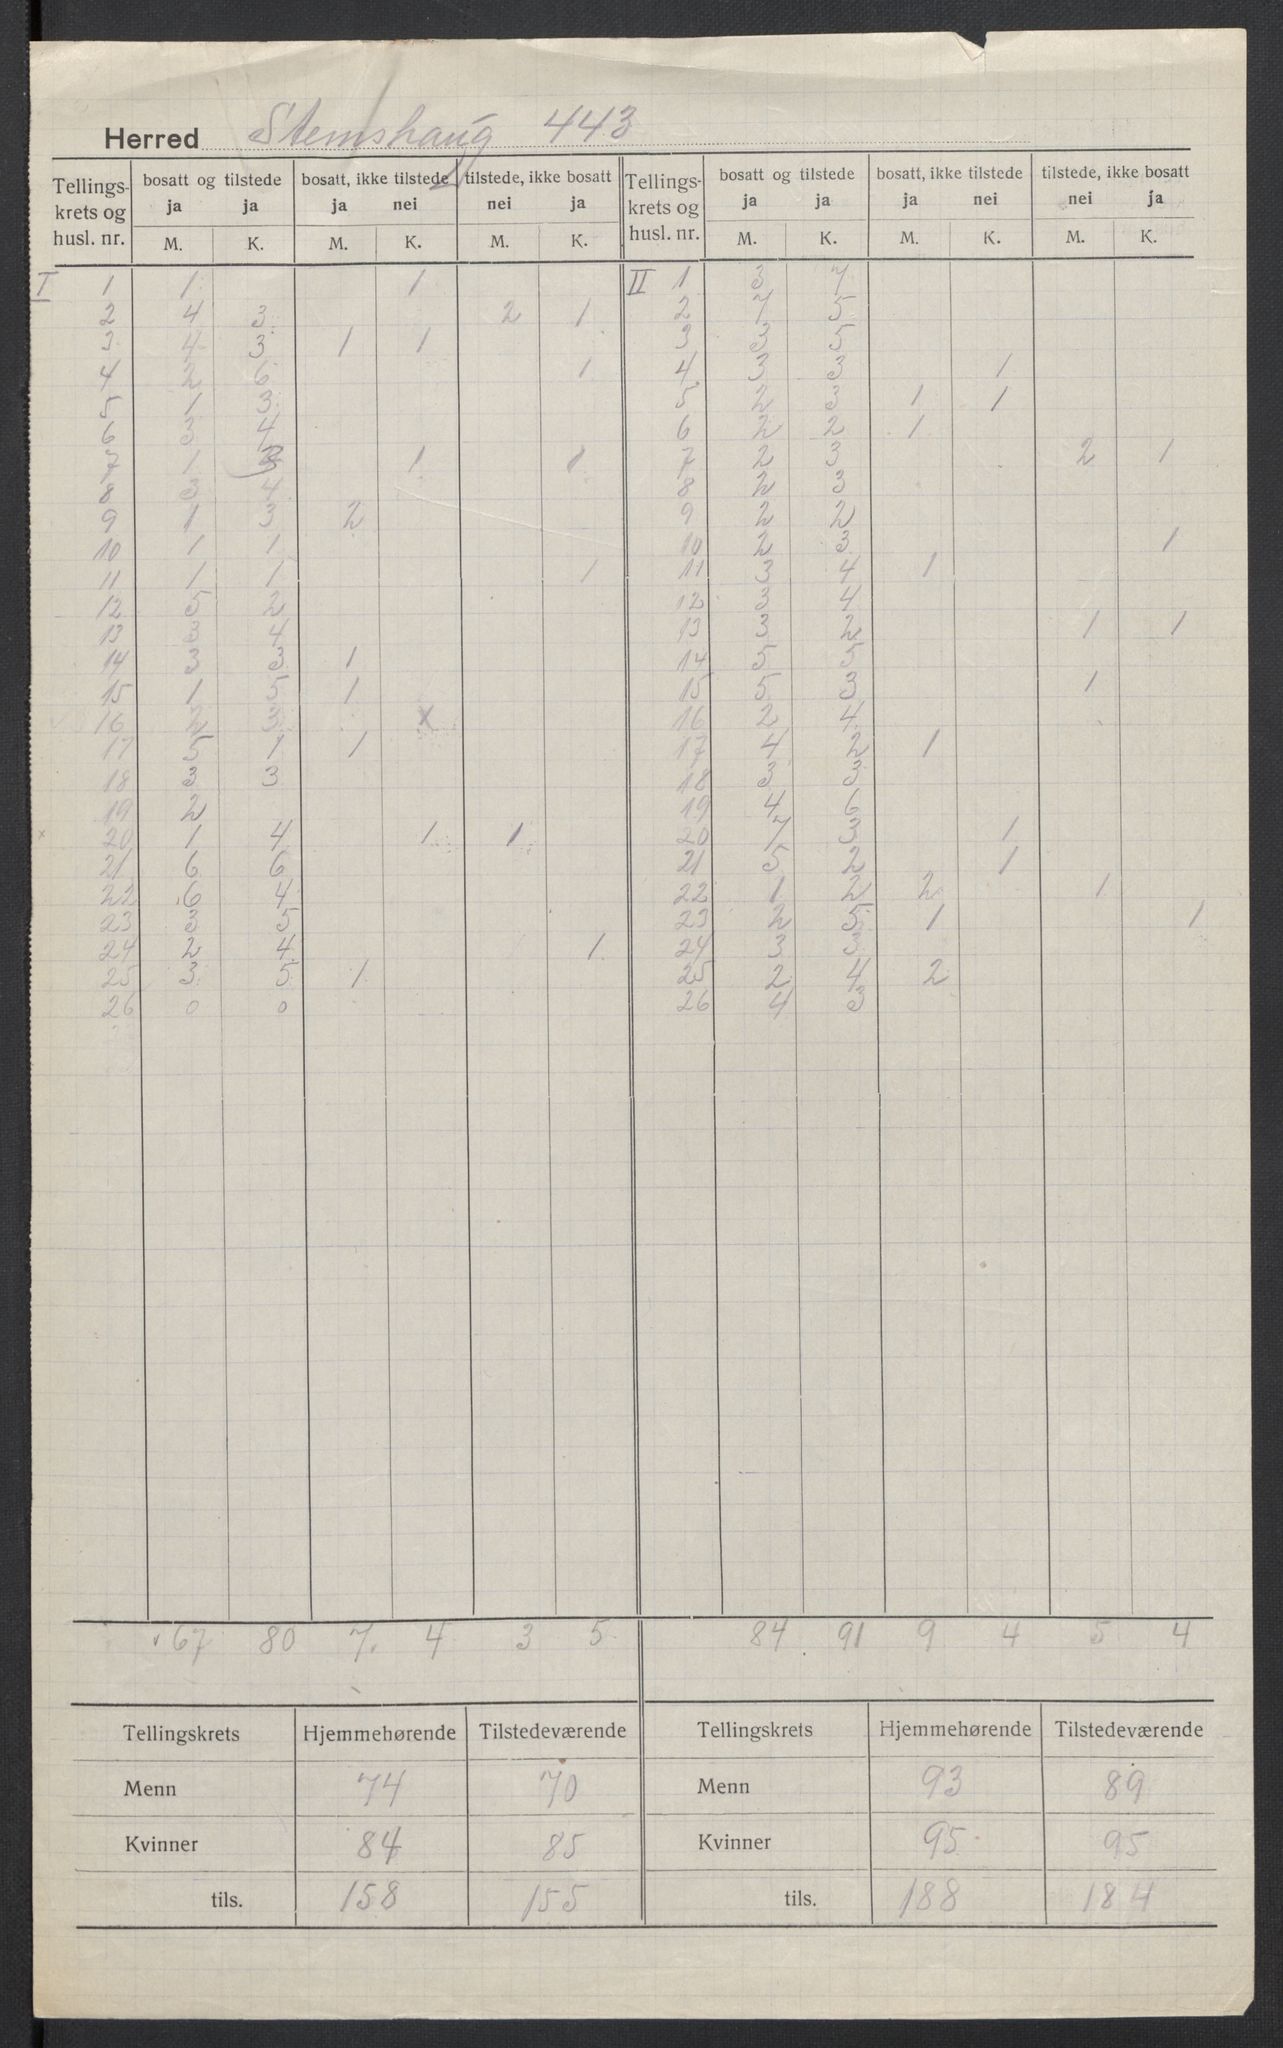 Herred Stemshaug 443
Tellings- krets og husl. nr. | bosatt og tilstede | bosatt, ikke tilstede | tilstede, ikke bosatt | Tellings- krets og husl. nr. | bosatt og tilstede | bosatt, ikke tilstede | tilstede, ikke bosatt
ja ja | ja nei | nei ja | ja ja | ja nei | nei ja
M. K. | M. K. | M. K. | M. K. | M. K. | M. K.
I 1 | 1 | | | 1 | | | II 1 | 3 | 7 | | | |
2 | 4 | 3 | | | 2 | 1 | 2 | 7 | 5 | | | |
3 | 4 | 3 | 1 | 1 | | | 3 | 3 | 5 | | | |
4 | 2 | 6 | | | | 1 | 4 | 3 | 3 | | 1 | |
5 | 1 | 3 | | | | | 5 | 2 | 3 | 1 | 1 | |
6 | 3 | 4 | | | | | 6 | 2 | 2 | 1 | | |
7 | 1 | 3 | | 1 | | 1 | 7 | 2 | 3 | | | 2 | 1
8 | 3 | 4 | | | | | 8 | 2 | 3 | | | |
9 | 1 | 3 | 2 | | | | 9 | 2 | 2 | | | |
10 | 1 | 1 | | | | | 10 | 2 | 3 | | | | 1
11 | 1 | 1 | | | | 1 | 11 | 3 | 4 | 1 | | |
12 | 5 | 2 | | | | | 12 | 3 | 4 | | | |
13 | 3 | 4 | | | | | 13 | 3 | 2 | | | 1 | 1
14 | 3 | 3 | 1 | | | | 14 | 5 | 5 | | | |
15 | 1 | 5 | 1 | | | | 15 | 5 | 3 | | | 1 |
16 | 2 | 3 | | x | | | 16 | 2 | 4 | | | |
17 | 5 | 1 | 1 | | | | 17 | 4 | 2 | 1 | | |
18 | 3 | 3 | | | | | 18 | 3 | 3 | | | |
19 | 2 | | | | | | 19 | 4 | 6 | | | |
20 | 1 | 4 | | 1 | 1 | | 20 | 7 | 3 | | 1 | |
21 | 6 | 6 | | | | | 21 | 5 | 2 | | 1 | |
22 | 6 | 4 | | | | | 22 | 1 | 2 | 2 | | 1 |
23 | 3 | 5 | | | | | 23 | 2 | 5 | 1 | | | 1
24 | 2 | 4 | | | | 1 | 24 | 3 | 3 | | | |
25 | 3 | 5 | 1 | | | | 25 | 2 | 4 | 2 | | |
26 | 0 | 0 | | | | | 26 | 4 | 3 | | | |
67 | 80 | 7 | 4 | 3 | 5 | | 84 | 91 | 9 | 4 | 5 | 4
Tellingskrets | Hjemmehørende | Tilstedeværende | Tellingskrets | Hjemmehørende | Tilstedeværende
Menn | 74 | 70 | Menn | 93 | 89
Kvinner | 84 | 85 | Kvinner | 95 | 95
tils. | 158 | 155 | tils. | 188 | 184